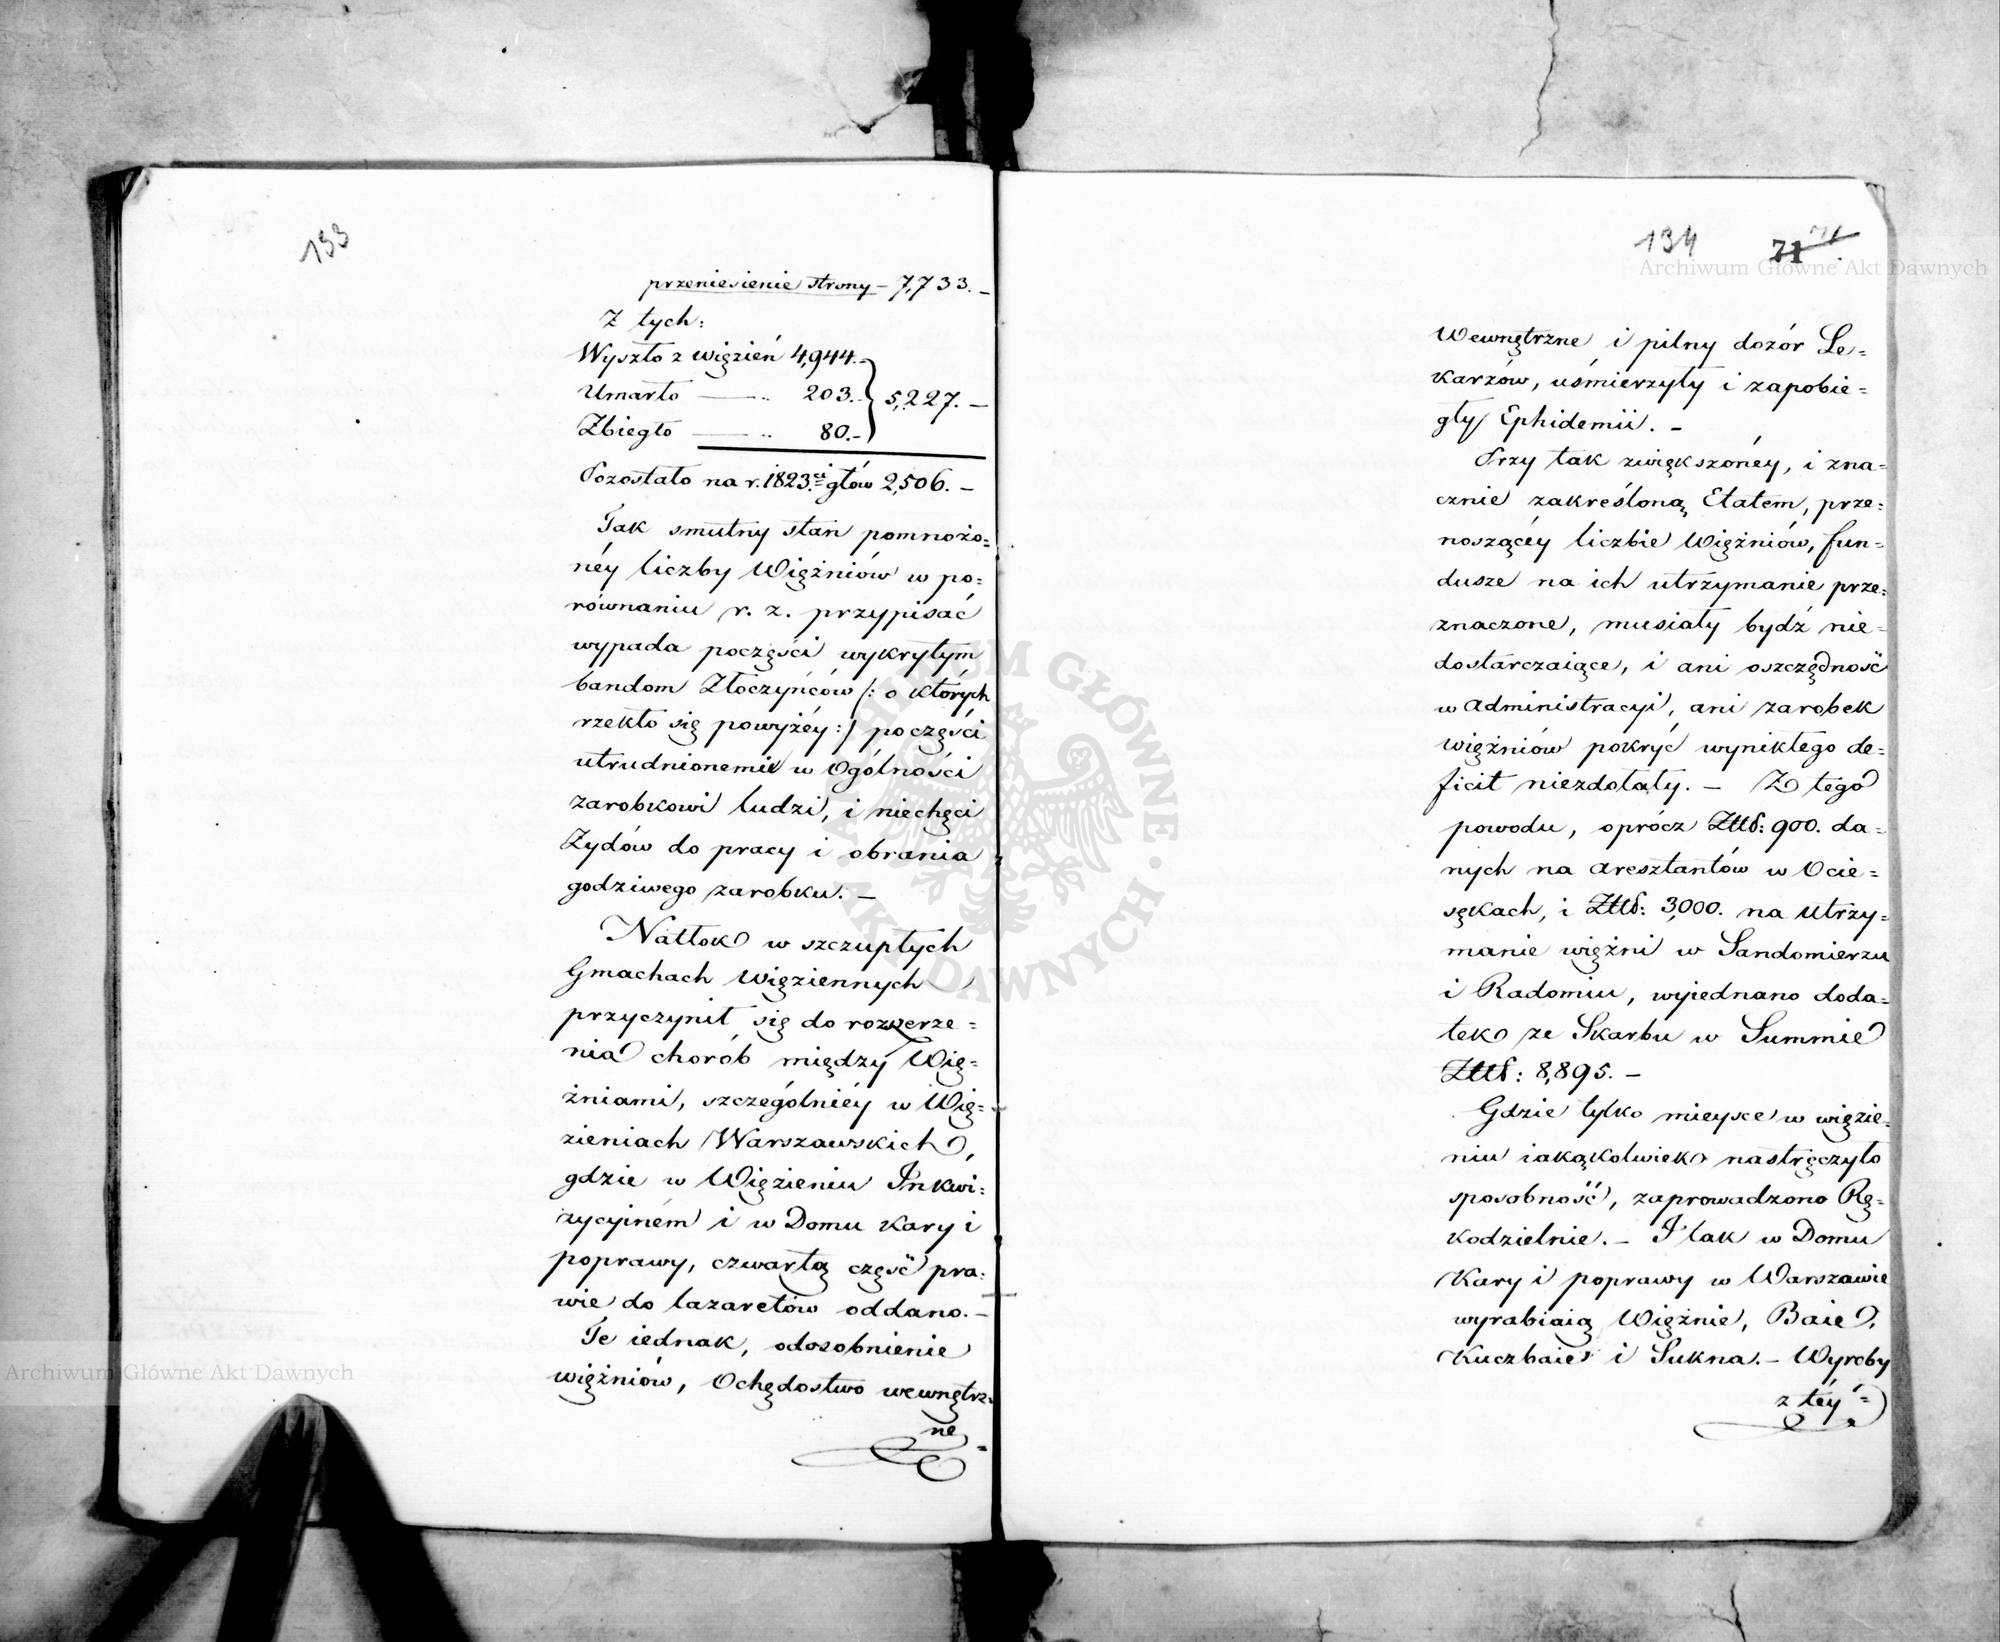 133
przeniesienie strony – 7,733. –
Z tych:
Wyszło z więzień 4,944. –
Umarło — „ 203. – } 5,227. –
Zbiegło — „ 80. –
Pozostało na r. 1823.ci głów 2,506. –
Tak smutny stan pomnożo=
néy liczby Więźniów w po=
równaniu r. z. przypisać
wypada poczęści wykrytym
bandom Złoczyńców (: o których
rzekło się powyżéy :) poczęści
utrudnionemu w Ogólności
zarobkowi ludzi, i niechęci
Żydów do pracy i obrania
godziwego zarobku. –
Natłok w szczupłych
Gmachach Więziennych
przyczynił się do rozszerze=
nia chorób między Wię=
źniami, szczególniéy w Wię=
zieniach Warszawskich,
gdzie w Więzieniu Inkwi=
zycyiném i w Domu Kary i
poprawy, czwartą część pra=
wie do lazaretów oddano. –
Te iednak, odosobnienie
więźniów, Ochędostwo wewnętrz=
ne
134 71 71
Wewnętrzne i pilny dozór Le=
karzów, uśmierzyły i zapobie=
gły Ephidemii. –
Przy tak zwiększonéy, i zna=
cznie zakreśloną Etatem, prze=
noszącéy liczbie Więźniów, fun=
dusze na ich utrzymanie prze=
znaczone, musiały bydź nie=
dostarczaiące, i ani oszczędność
w administracyi, ani zarobek
więźniów pokryć wynikłego de=
ficit niezdołały. – Z tego
powodu, oprócz Złt: 900. da=
nych na aresztantów w Ocie=
sękach, i Złt: 3,000. na utrzy=
manie więźni w Sandomierzu
i Radomiu, wyiednano doda=
tek ze Skarbu w Summie
Złt: 8,895. –
Gdzie tylko mieysce w więzie=
niu iakąkolwiek nastręczyło
sposobność, zaprowadzono Rę=
kodzielnie. – I tak w Domu
Kary i poprawy w Warszawie
wyrabiaią Więźnie, Baie,
Kuczbaie i Sukna. – Wyroby
z téy =
Archiwum Główne Akt Dawnych
Archiwum Główne Akt Dawnych
ARCHIWUM GŁÓWNE AKT DAWNYCH